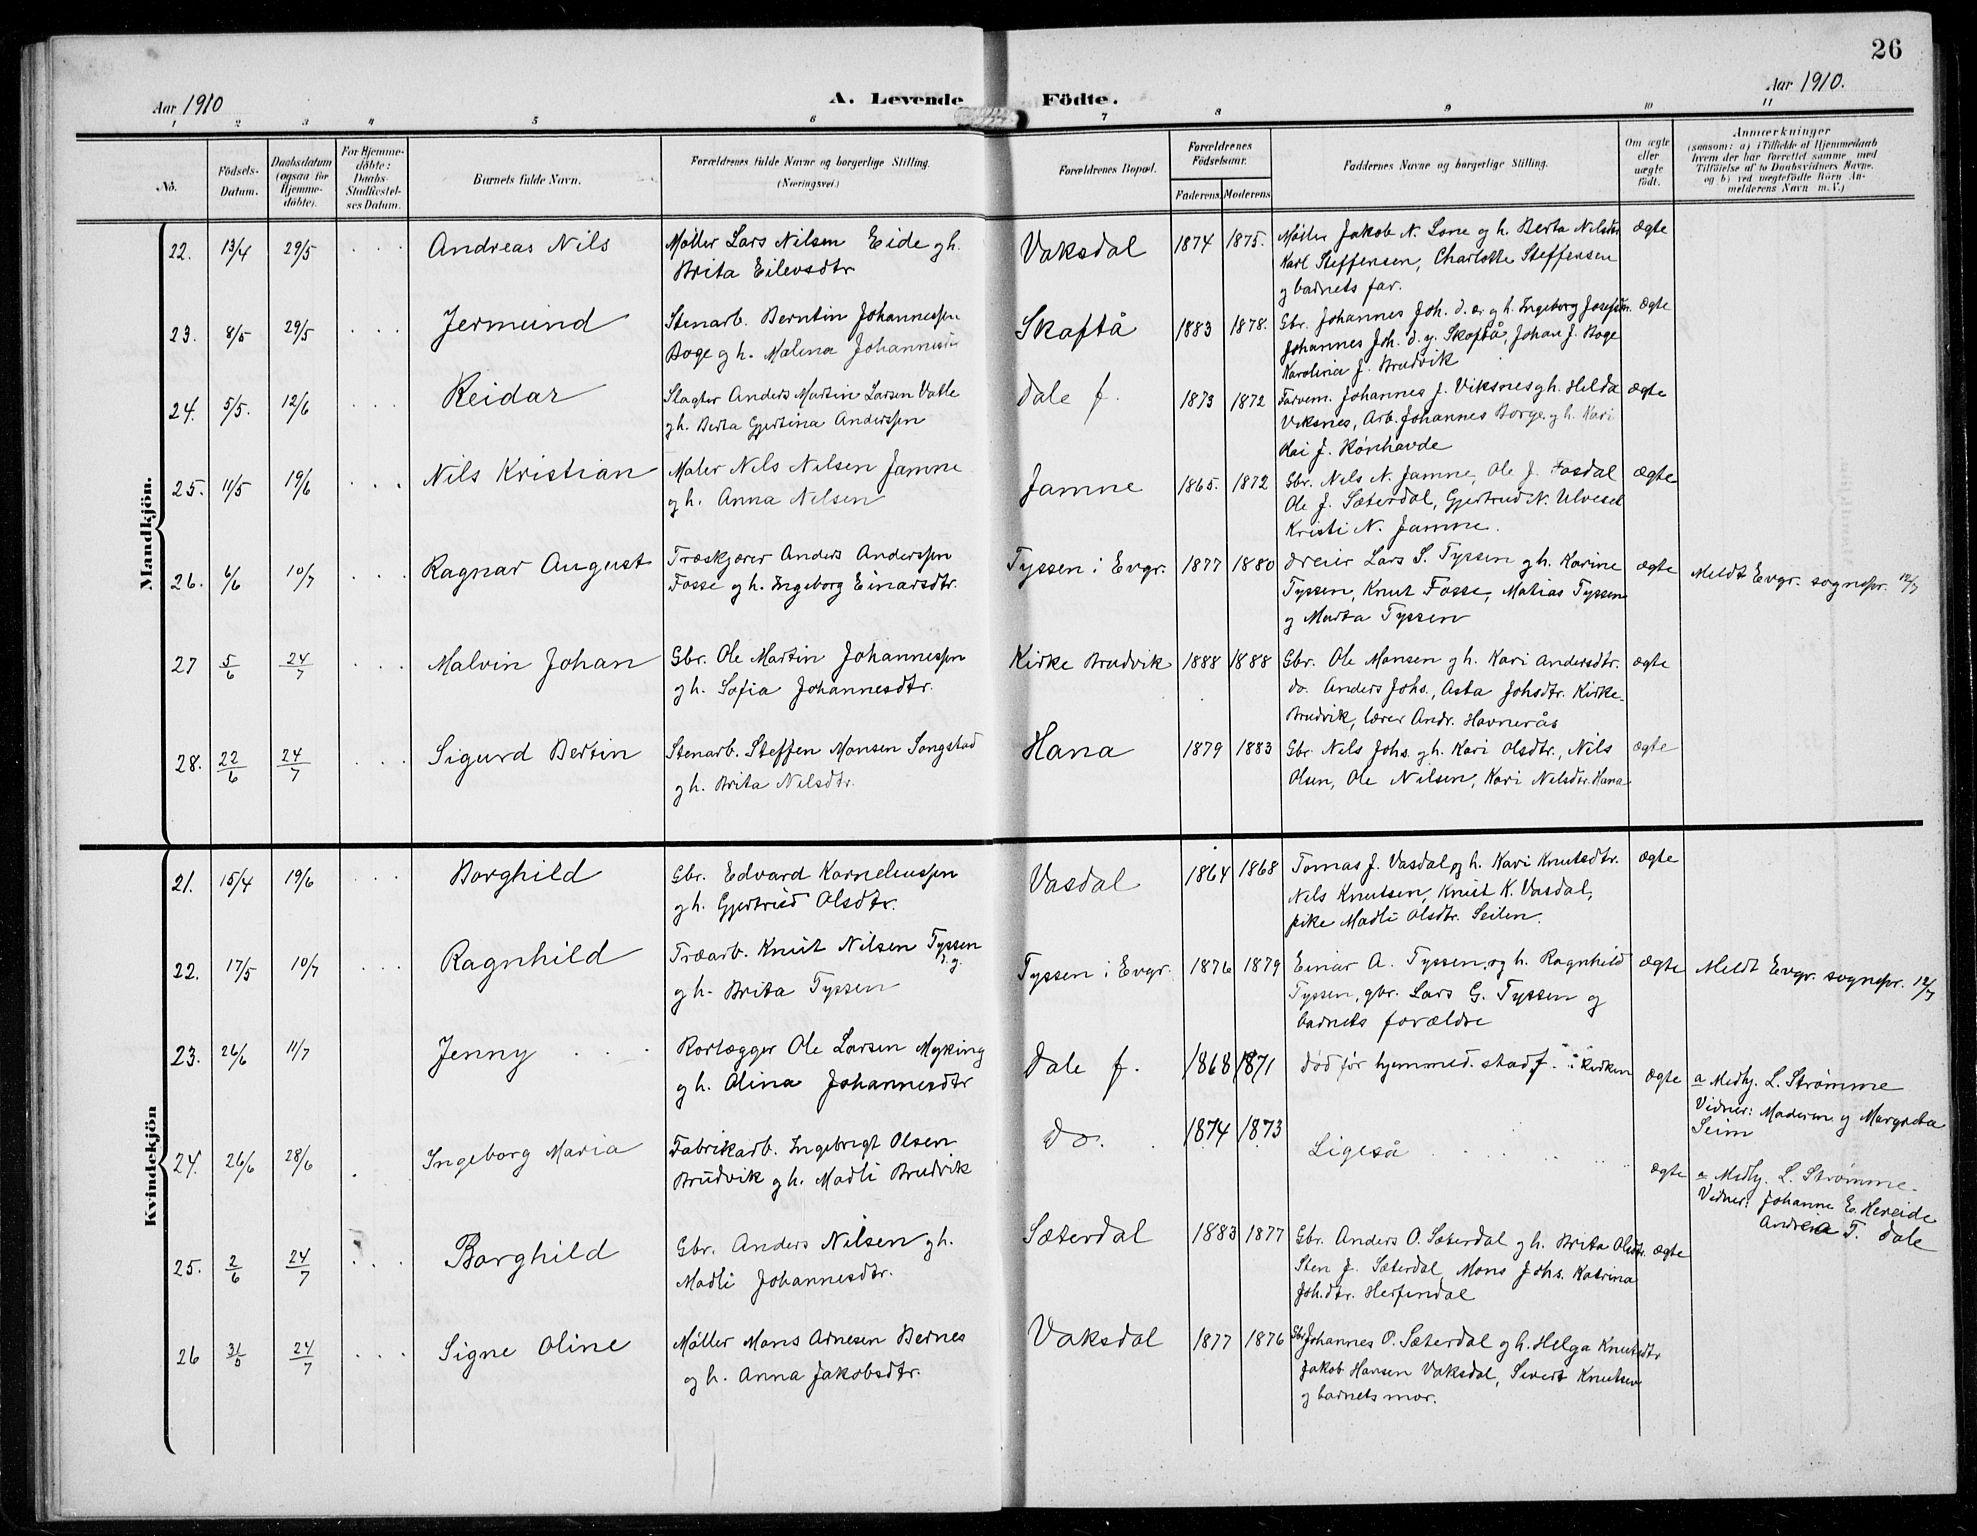 26
Aar 1910
A. Levende Födte.
Aar 1910.
1 2 3 4 5 6 7 8 9 10 11
No.
Födsels-
Datum.
Daabsdatum
(ogsaa for
Hjemme-
døbte).
For Hjemme-
døbte:
Daabs-
Stadfæstel-
ses Datum.
Barnets fulde Navn.
Forældrenes fulde Navne og borgerlige Stilling.
(Næringsvei.)
Forældrenes Bopæl.
Forældrenes
Födselsaar.
Faderens. Moderens
Faddernes Navne og borgerlige Stilling.
Om ægte
eller
uægte
født.
Anmærkninger
(saasom: a) i Tilfælde af Hjemmedaab
hvem der har forrettet samme med
Tilföielse af to Daabsvidners Navne.
og b) ved uægtefödte Börn An-
melderens Navn m. V.)
Mandkjön.
22. 13/4 29/5 . . . Andreas Nils
Møller Lars Nilsen Eide gh.
Brita Eilevsdtr
Vaksdal 1874 1875.
Møller Jakob N. Lone og h. Berta Nilsdtr
Karl Steffensen, Charlotte Steffensen
og barnets far.
ægte
23. 8/5 29/5 . . . Jermund
Stenarb. Berntin Johannessen
Boge g h. Malena Johannesdtr
Skaftå 1883 1878.
Gbr. Johannes Joh. d. æ. g h. Ingeborg Josefsdtr.
Johannes Joh. d. y. Skaftå, Johan J. Boge
Karolina J. Brudvik
ægte
24. 5/5. 12/6 . . . Reidar
Slagter Anders Martin Larsen Valle
gh. Berta Gjertina Anderssen
Dale f. 1873 1872
Farvem. Johannes J. Viksnes gh. Hilda
Viksnes, Arb. Johannes Borge g h. Kari
Kai J. Rønhovde
ægte
25. 11/5 19/6 . . . Nils Kristian
Maler Nils Nilsen Jamne
og h. Anna Nilsen
Jamne 1865. 1872
Gbr. Nils N. Jamne, Ole J. Fosdal
Ole J. Sæterdal, Gjertrud N. Ulveset
Kristi N. Jamne.
ægte
26. 6/6 10/7 . . . Ragnar August
Træskjærer Anders Anderssen
Fosse og h. Ingeborg Einarsdtr.
Tyssen i Evgr. 1877 1880
Dreier Lars S. Tyssen og h. Karine
Tyssen, Knut Fosse, Matias Tyssen
og Marta Tyssen
ægte
Meldt Evgr. sognepr. 12/7
27 5/6 24/7 . . . Malvin Johan
Gbr. Ole Martin Johannessen
og h. Sofia Johannesdtr.
Kirke Brudvik 1888 1888
Gbr. Ole Monsen og h. Kari Andersdtr.
do. Anders Johs., Asta Johsdtr. Kirke-
Brudvik, lærer Andr. Havnerås
ægte
28. 22/6 24/7 . . . Sigurd Bertin
Stenarb. Steffen Monsen Songstad
og h. Brita Nilsdtr.
Hana 1879 1883
Gbr. Nils Johs. g h. Kari Olsdtr., Nils
Olsen, Ole Nilsen, Kari Nilsdtr. Hana
ægte
Kvindekjön
21. 15/4 19/6 . . . Borghild
Gbr. Edvard Korneliussen
og h. Gjertrud Olsdtr.
Vasdal 1864 1868
Tomas J. Vasdal, og h. Kari Knutsdtr.
Nils Knutsen, Knut K. Vasdal,
pike Madli Olsdtr. Seilen.
ægte
22. 17/5 10/7 . . . Ragnhild
Træarb. Knut Nilsen Tyssen
og h. Brita Tyssen
Tyssen i Evgr. 1876 1879
Einar A. Tyssen, og h. Ragnhild
Tyssen, gbr. Lars G. Tyssen og
barnets forældre
ægte
Meldt Evgr. sognepr. 12/7
23. 26/6 11/7 Jenny . . .
Rørlægger Ole Larsen Myking
og h. Olina Johannesdtr
Dale f. 1868 1871
Død før hjemmed. stadf. i kirken
ægte
a Medhj. L. Strømme
Vidner: Moderen og Margreta
Seim
24. 26/6 28/6 . Ingeborg Maria
Fabrikarb. Ingebrigt Olsen
Brudvik og h. Madli Brudvik
Do. . 1874 1873
Ligeså . . . . .
ægte
a Medhj. L. Strømme.
Vidner: Johanne E. Hereide
Andrea T. Dale
25. 2/6 24/7 . . . Borghild
Gbr. Anders Nilsen gh.
Madli Johannesdtr.
Sæterdal 1883 1877
Gbr. Anders O. Sæterdal g h. Brita Olsdtr.
Sten J. Sæterdal, Mons Johs. Katrina
Joh.dtr. Herfindal
ægte
26 31/5 24/7 . . . Signe Oline
Møller Mons Arnesen Bernes
og h. Anna Jakobsdtr.
Vaksdal 1877 1876
Gbr. Johannes O. Sæterdal og h. Helga Knutsdtr
Jakob Hansen Vaksdal, Sivert Knutsen
og barnets mor.